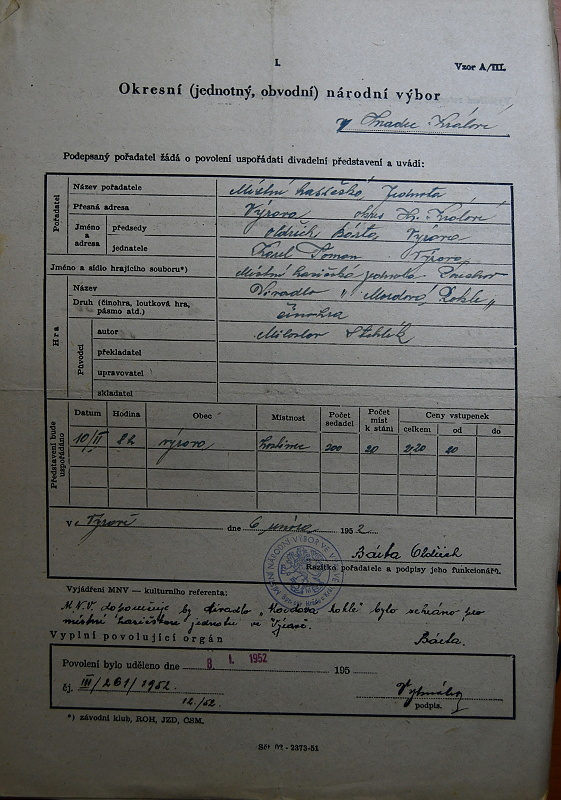 I.
Vzor A/III.
Okresní (jednotný, obvodní) národní výbor
v Hradec Králové
Podepsaný pořadatel žádá o povolení uspořádati divadelní představení a uvádí:
Pořadatel
Název pořadatele Místní hasičská Jednota
Přesná adresa Výrava okres Hr. Králové
Jméno a adresa
předsedy Oldřich Bárta Výrava
jednatele Karel Doman Výrava
Jméno a sídlo hrajícího souboru*) Místní hasičská jednota
Hra
Název Divadlo „Mordová Rokle"
Druh (činohra, loutková hra, pásmo atd.) činohra
Původci
autor Miloslav Stehlík
překladatel
upravovatel
skladatel
Představení bude uspořádáno
Datum Hodina Obec Místnost Počet sedadel Počet míst k stání Ceny vstupenek
celkem od do
10/II 8 h výrava hostinec 200 20 20
V Výravě dne 6 února 1952
MÍSTNÍ NÁRODNÍ VÝBOR VE VÝRAVĚ
Bárta Oldřich
Razítko pořadatele a podpisy jeho funkcionářů.
Vyjádření MNV — kulturního referenta:
M.N.V. doporučuje by divadlo „Mordova rokle" bylo sehráno pro
místní hasičskou jednotu ve Výravě.
Bárta.
Vyplní povolující orgán
Povolení bylo uděleno dne 8. I. 1952 195
čj. III/261/1952.
12./52.
podpis.
*) závodní klub, ROH, JZD, ČSM.
2373-51